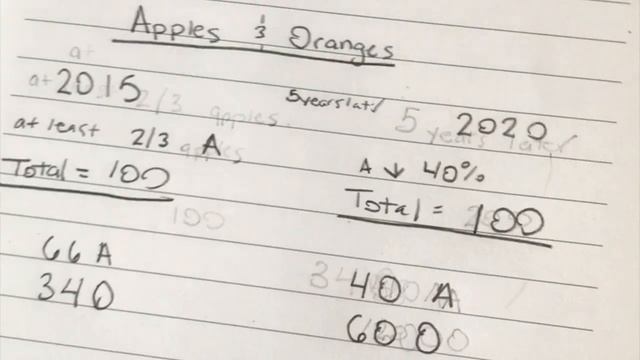 Apples & Oranges
at 2015
at least 2/3 A
Total = 100
66 A
34 O
5 years later
2020
A ↓ 40%
Total = 100
40 A
60 O